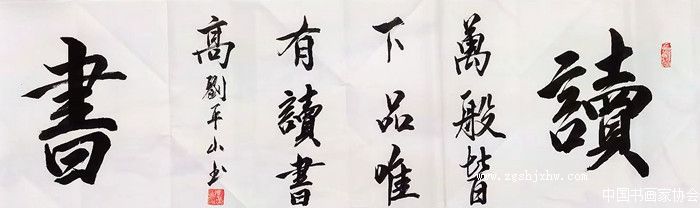 讀
萬般皆
下品唯
有讀書
高劉平山书
書
www.zgshjxhw.com
中国书画家协会